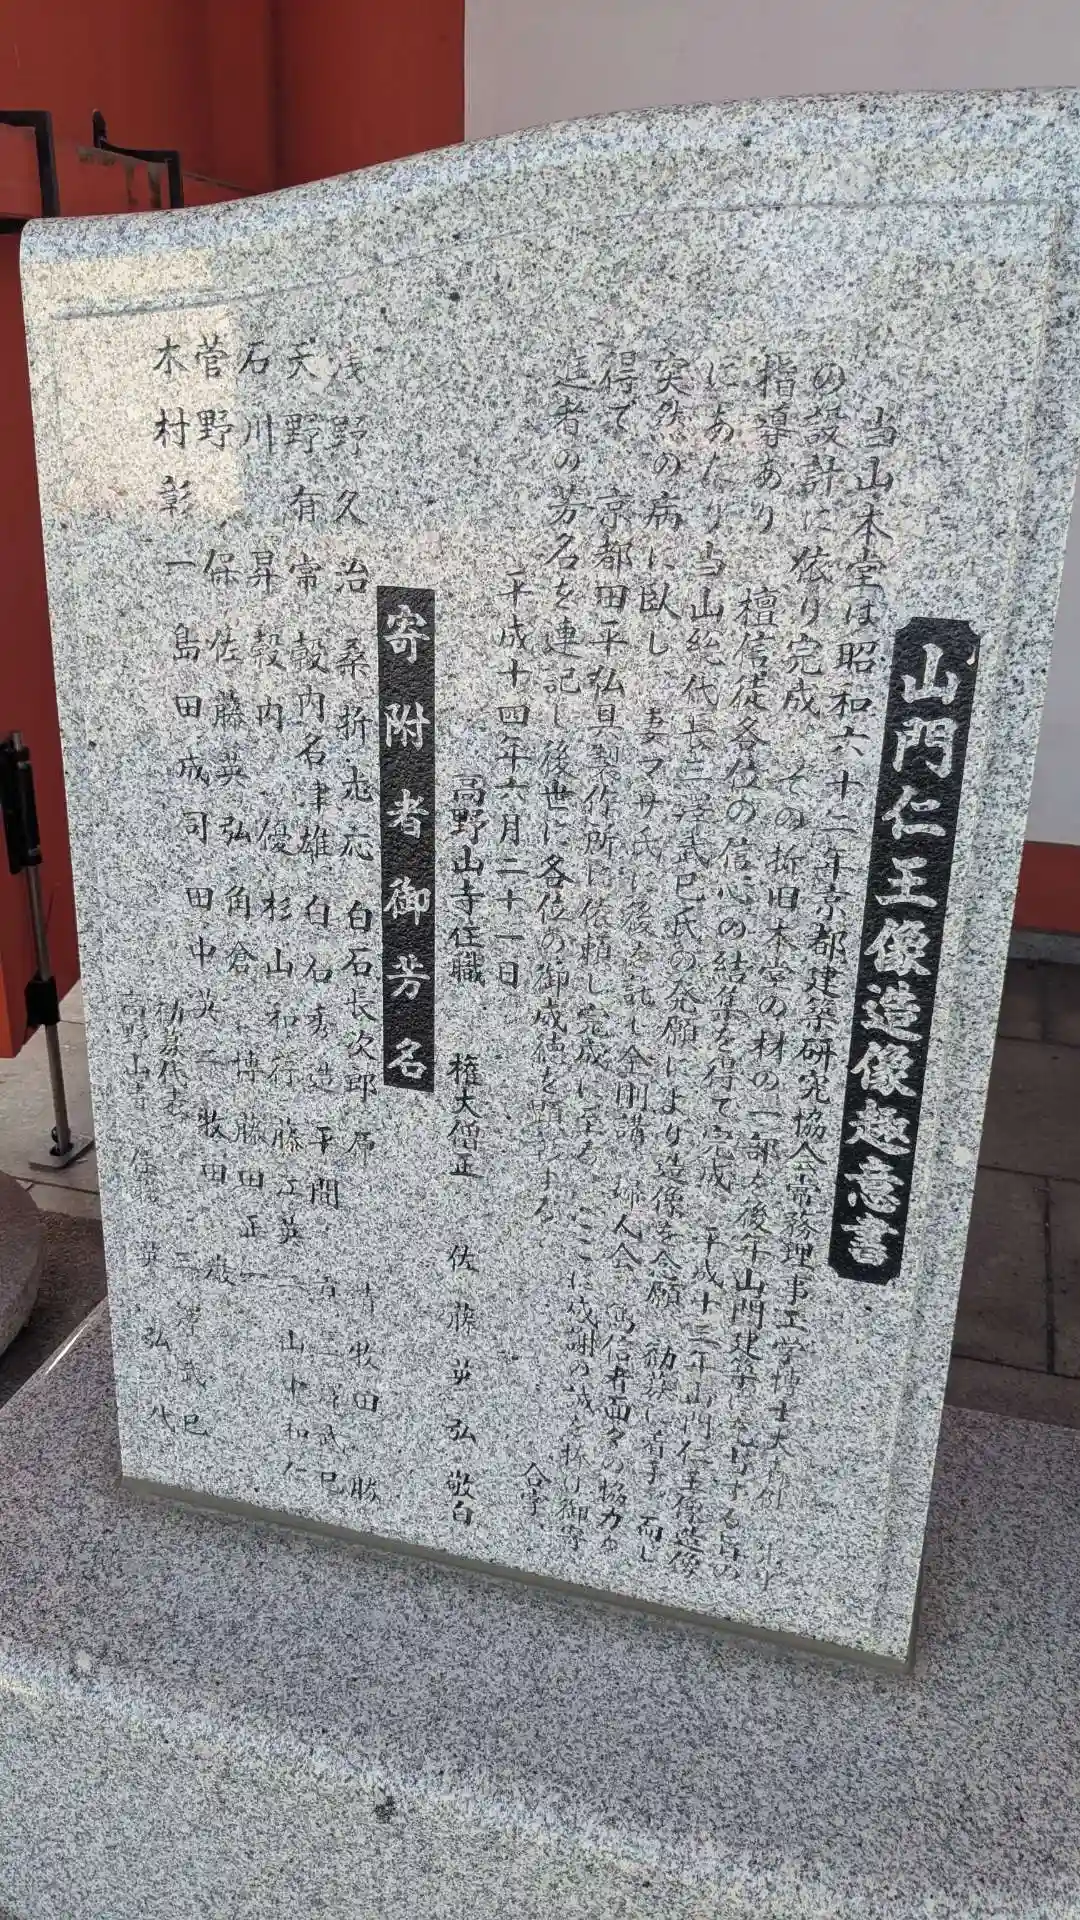 山門仁王像造像趣意書
当山本堂は昭和六十二年京都建築研究協会常務理事工学博士大森
の設計に依り完成 その折旧本堂の材の一部を後年山門建築に
指導あり 檀信徒各位の信心の結集を得て完成 平成十三年山門仁王像造像
にあたり当山総代長三澤武巳氏の発願により造像を念願 勧募に着手 而し
突然の病に臥し妻マサ氏に後を託し金剛講 婦人会 篤信者面々の協力を
得て 京都田平仏具製作所に依頼し完成に至る ここに感謝の誠を捧げ御寄
進者の芳名を連記し後世に各位の御威徳を顕彰する 合掌
平成十四年六月二十一日
高野山寺住職 権大僧正 佐藤英弘 敬白
寄附者御芳名
浅野久治 桑折 白石長次郎 牧田勝
天野有常 穀内名津雄 白石秀造 平間 三澤武巳
石川昇 穀内優 杉山和行 藤江英一 山下和
菅野保 佐藤英弘 角倉博 藤田正一
木村彰一 島田成司 田中英二 牧田 巌
勧募代表 三澤武巳
高野山寺 住職 英弘代